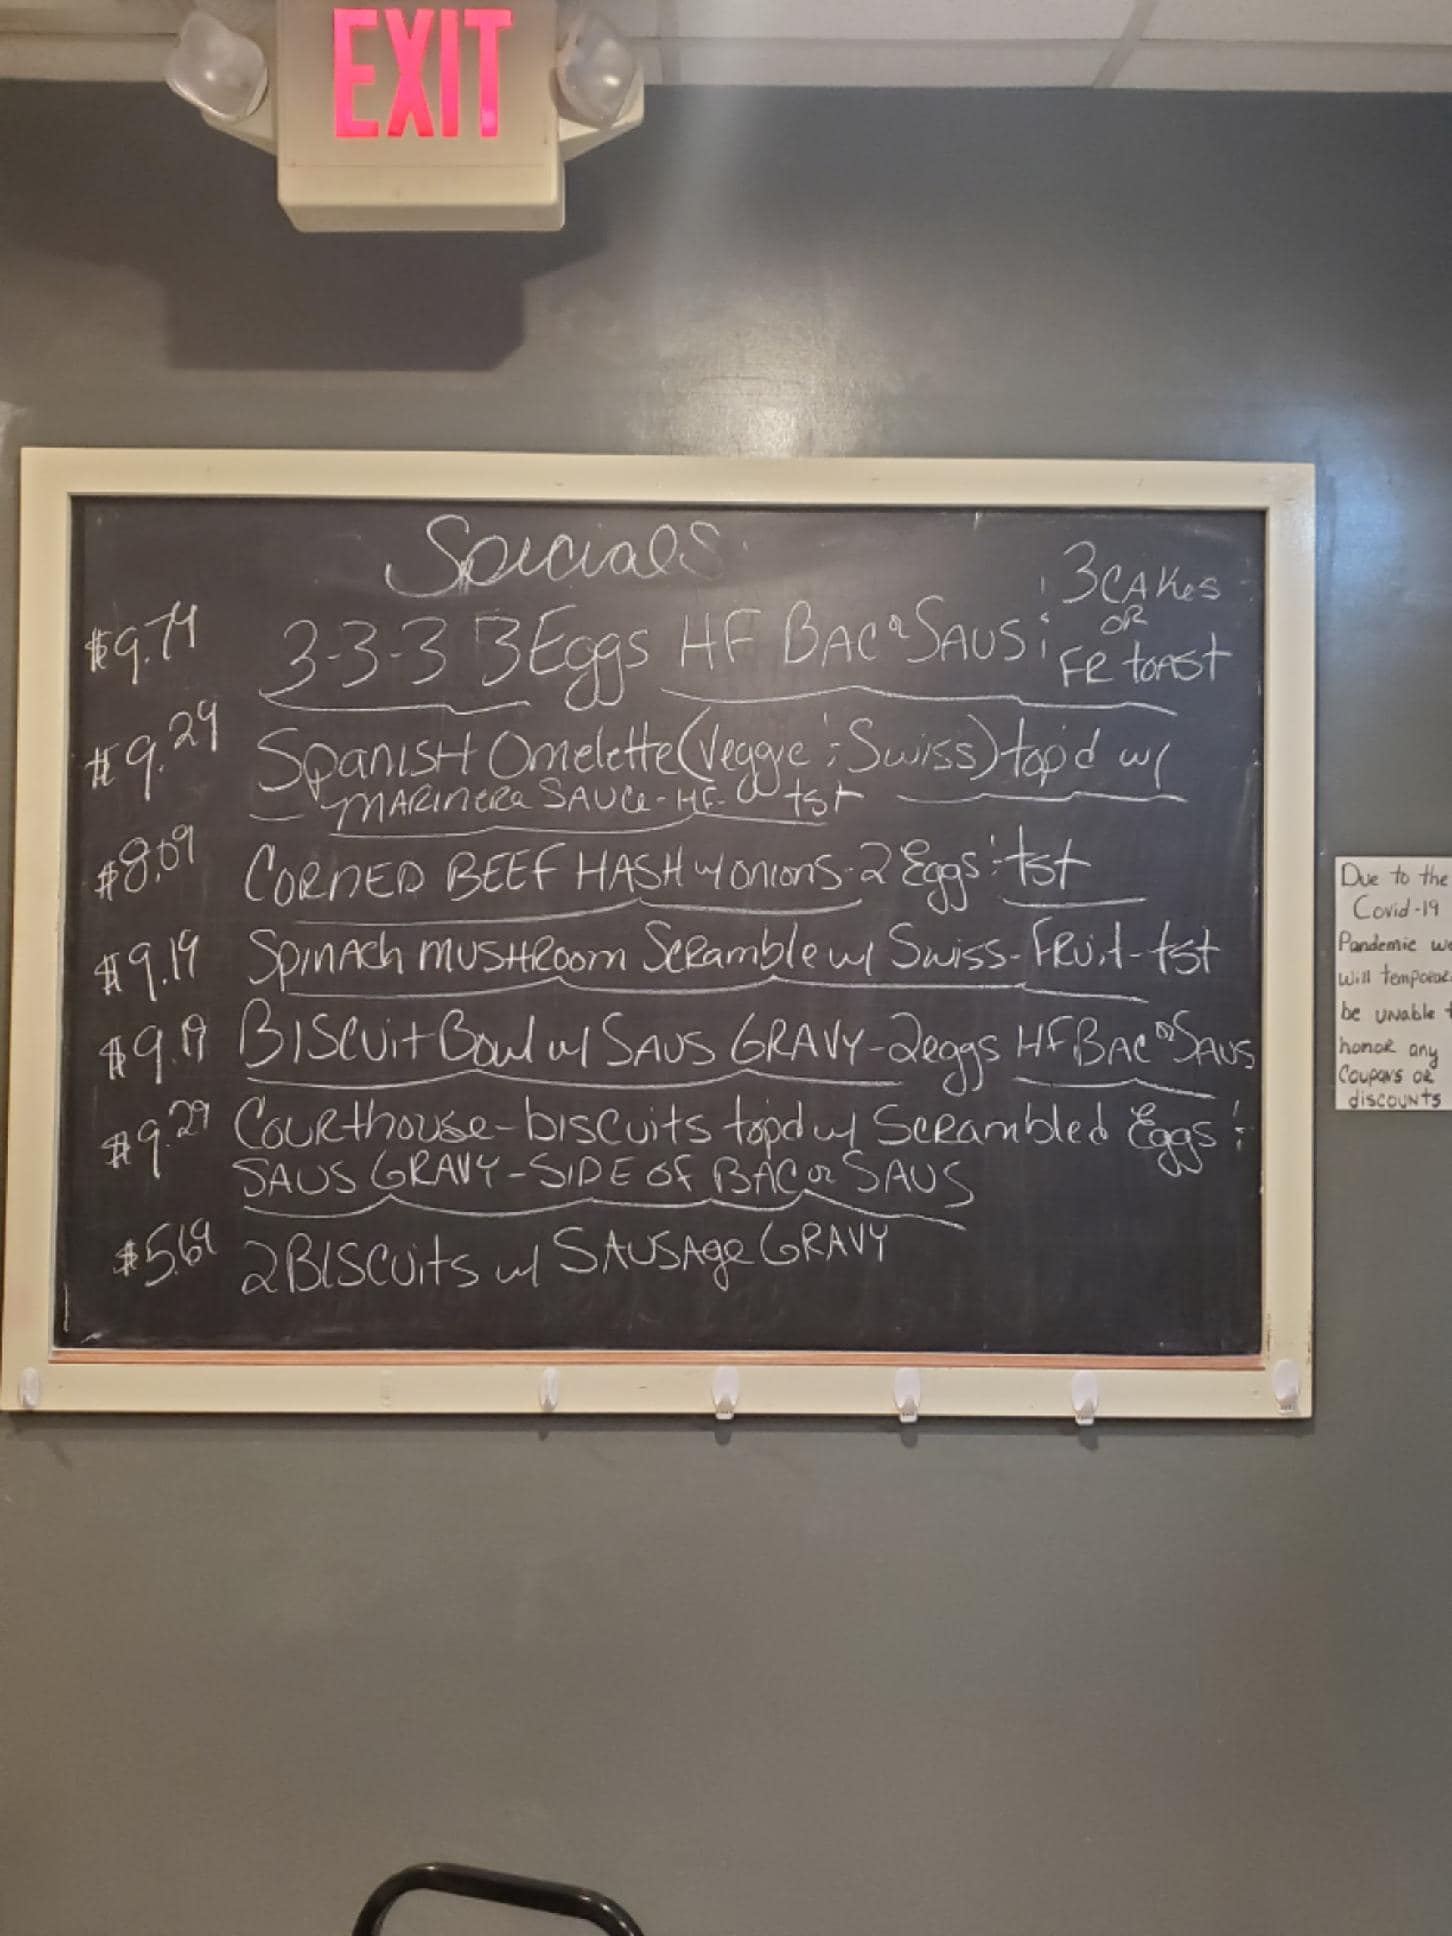 EXIT
Specials
3 CAKES
OR
FR toAst
$9.74 3-3-3 3 Eggs HF BAC or SAUS &
$9.29 SPANISH Omelette (Veggie & Swiss) top'd w/
MARINERA SAUCE - HF - tst
$8.09 CORNED BEEF HASH w/ onions - 2 Eggs & tst
$9.19 SpinAch MUSHROOM SCRamble w/ Swiss - FRuit - tst
$9.19 BISCUit Bowl w/ SAUS GRAVY - 2 eggs HF BAC or SAUS
$9.29 COURthouse - biscuits topd w/ SCRambled Eggs &
SAUS GRAVY - SIDE OF BAC or SAUS
$5.69 2 BISCUits w/ SAUSAge GRAVY
Due to the
Covid-19
Pandemic we
will tempoRaR
be unable t
honoR any
Coupons oR
discounts